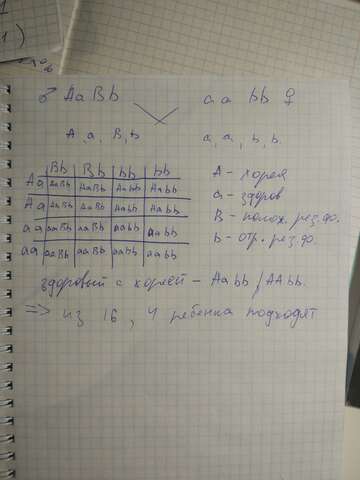 ♂ Aa Bb   aa bb ♀
A, a, B, b   a, a, b, b.
Bb Bb bb bb
Aa AaBb AaBb Aabb Aabb
Aa AaBb AaBb Aabb Aabb
aa aaBb aaBb aabb aabb
aa aaBb aaBb aabb aabb
A - хорея
a - здоров
B - полож. рез. фо.
b - отр. рез. фо.
здоровый с хореей - Aabb / AAbb.
=> из 16, 4 ребенка подходят